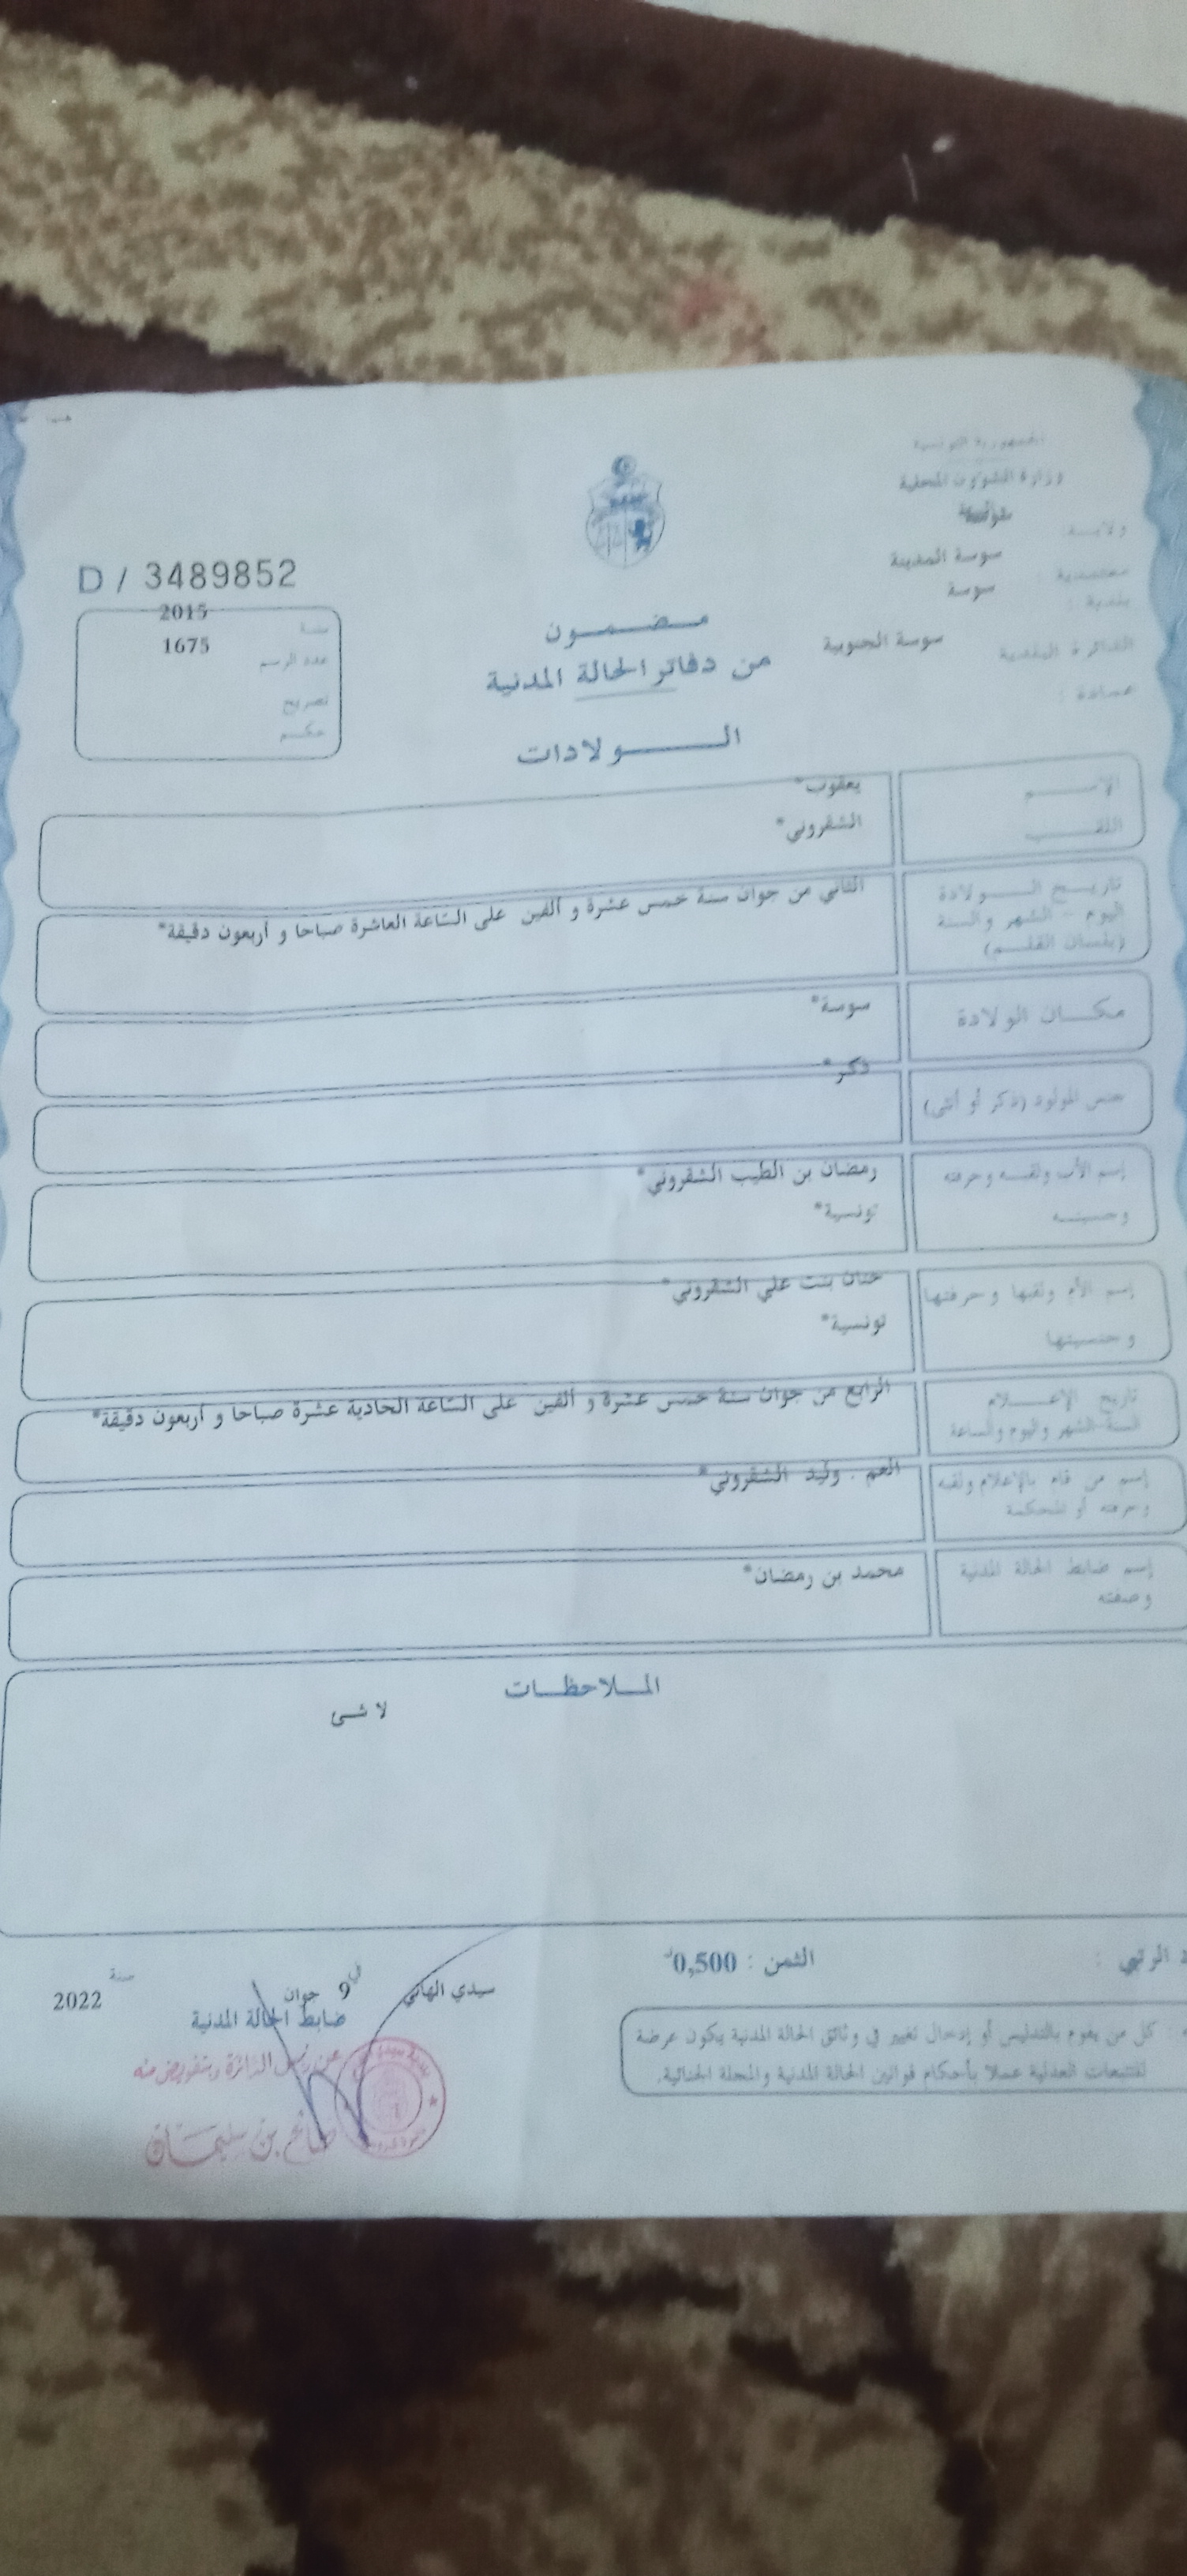 الجمهورية التونسية
وزارة الشؤون المحلية
ولاية : سوسة
معتمدية : سوسة المدينة
بلدية : سوسة
الدائرة البلدية سوسة الجنوبية
عمادة :
D / 3489852
سنة 2015
عدد الرسم 1675
تصريح
حكم
مضمون
من دفاتر الحالة المدنية
الولادات
الإسم يعقوب*
اللقب الشقروني*
تاريخ الولادة
اليوم - الشهر والسنة
(بلسان القلم)
الثاني من جوان سنة خمس عشرة و ألفين على الساعة العاشرة صباحا و أربعون دقيقة*
مكان الولادة سوسة*
جنس المولود (ذكر أو أنثى) ذكر*
إسم الأب ولقبه وحرفته رمضان بن الطيب الشقروني*
وجنسيته تونسية*
إسم الأم ولقبها وحرفتها حنان بنت علي الشقروني*
وجنسيتها تونسية*
تاريخ الإعلام
السنة الشهر واليوم والساعة
الرابع من جوان سنة خمس عشرة و ألفين على الساعة الحادية عشرة صباحا و أربعون دقيقة*
إسم من قام بالإعلام ولقبه
وحرفته أو المحكمة
العم . وليد الشقروني*
إسم ضابط الحالة المدنية
وصفته
محمد بن رمضان*
الملاحظات
لا شى
الثمن : 0,500د
سيدي الهاني في 9 جوان سنة 2022
ضابط الحالة المدنية
عن رئيس الدائرة وبتفويض منه
صالح بن سليمان
: كل من يقوم بالتدليس أو إدخال تغيير في وثائق الحالة المدنية يكون عرضة
للتتبعات العدلية عملا بأحكام قوانين الحالة المدنية والمجلة الجنائية.